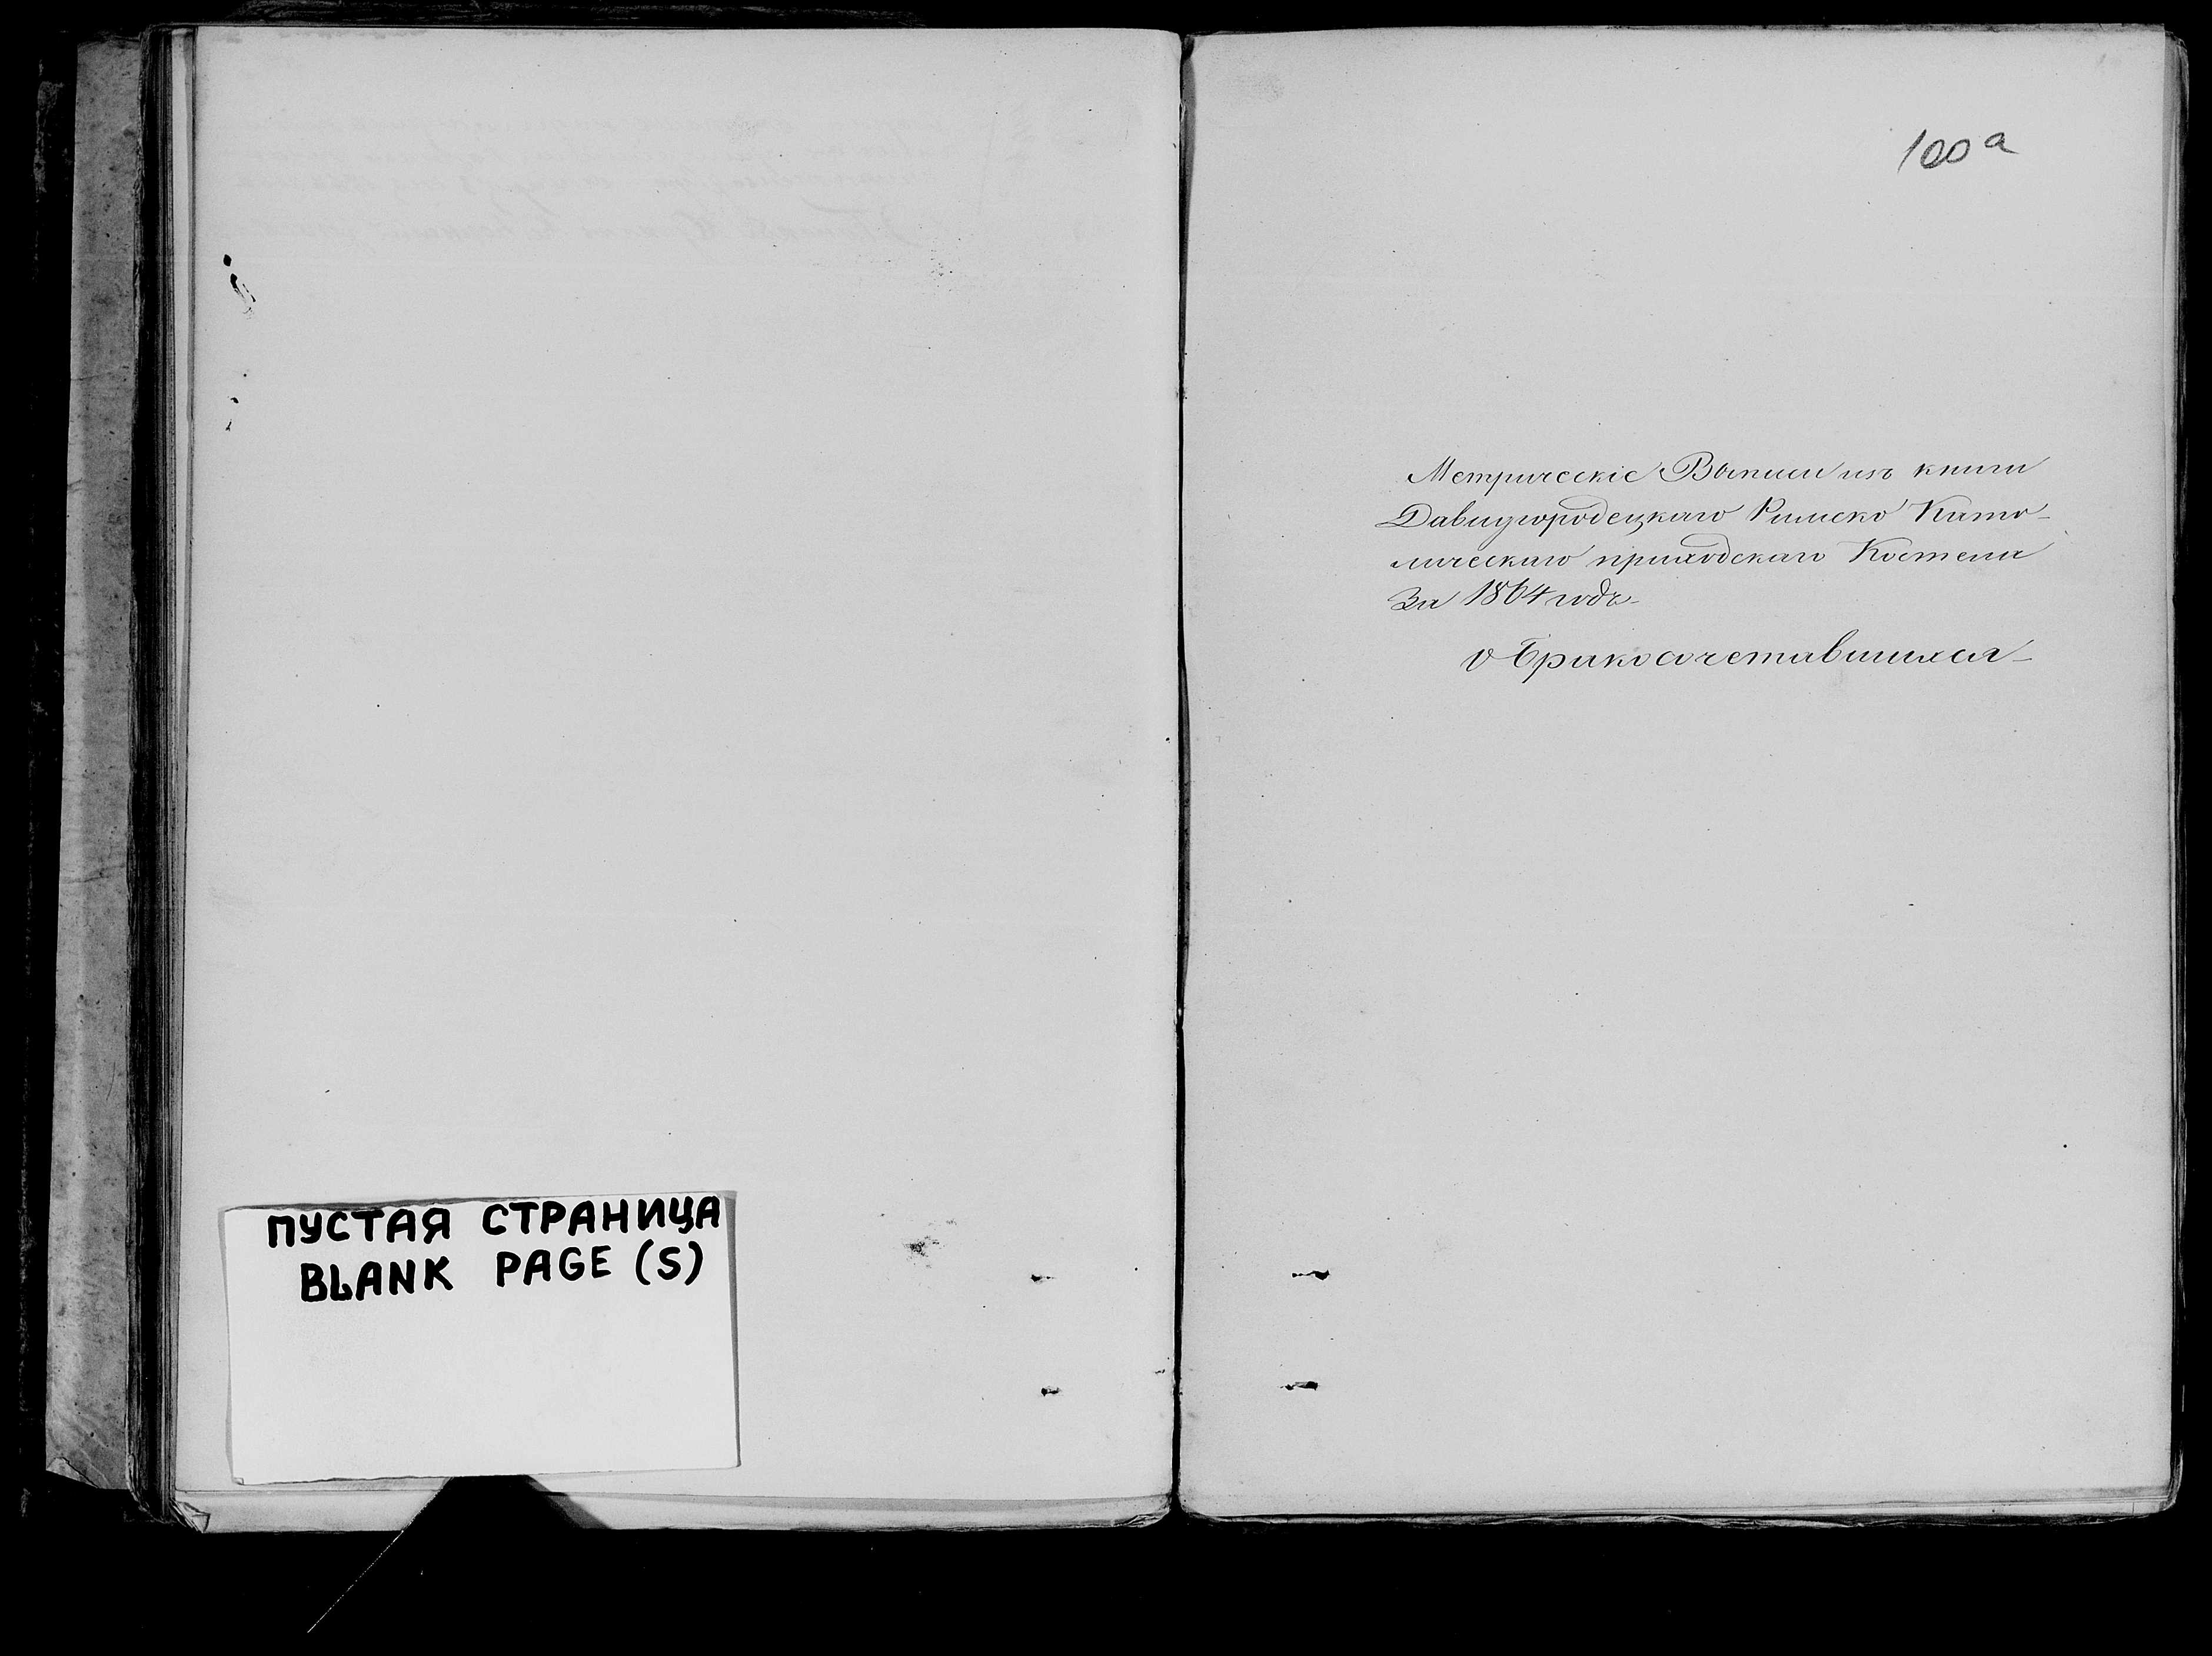 ПУСТАЯ СТРАНИЦА
BLANK PAGE (S)
100 а
Метрическіе Выписи изъ книги
Давидгородецкаго Римско Като-
лическаго приходскаго Костела
За 1864 годъ
о бракосочетавшихся